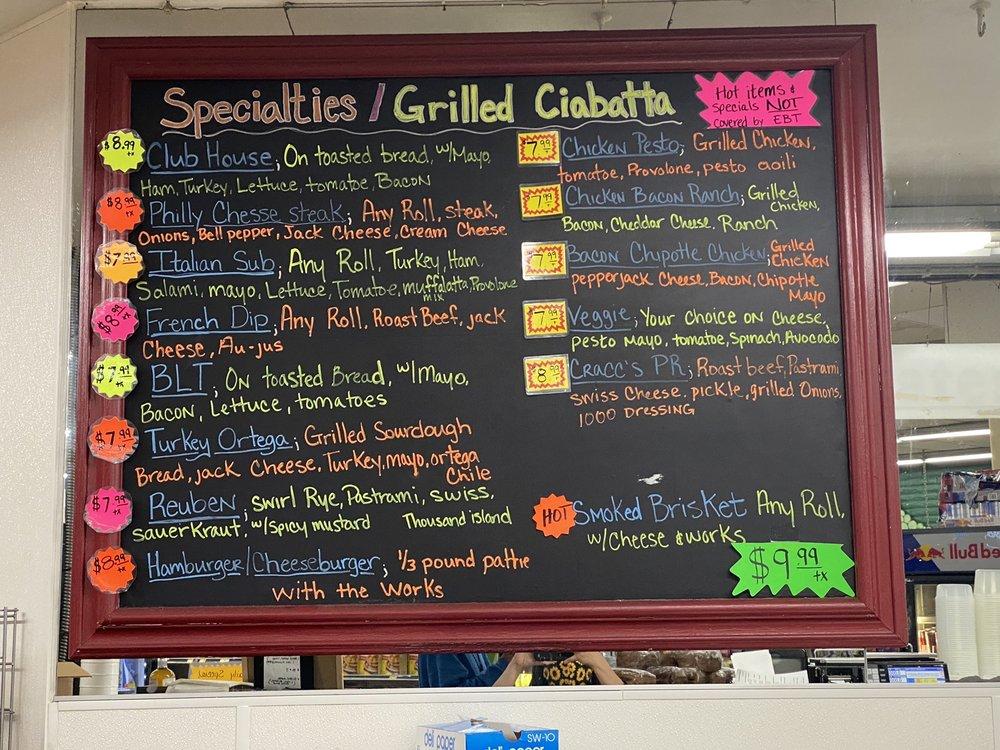 Specialties / Grilled Ciabatta
Hot items &
Specials NOT
covered by EBT
$8.99
+x
Club House; On toasted bread, w/Mayo,
Ham, Turkey, Lettuce, tomatoe, Bacon
$8.99
+x
Philly Chesse steak; Any Roll, steak,
Onions, Bell pepper, Jack Cheese, Cream Cheese
$7.99
Italian Sub; Any Roll, Turkey, Ham,
Salami, mayo, Lettuce, Tomatoe, muffalatta, Provolone
mix
$8.99
+x
French Dip; Any Roll, Roast Beef, jack
Cheese, Au-jus
$7.99
+x
BLT; On toasted Bread, w/Mayo,
Bacon, Lettuce, tomatoes
$7.99
+x
Turkey Ortega; Grilled Sourdough
Bread, jack Cheese, Turkey, mayo, ortega
Chile
$7.99
+x
Reuben; swirl Rye, Pastrami, swiss,
sauerKraut, w/spicy mustard Thousand island
$8.99
+x
Hamburger/Cheeseburger; 1/3 pound pattie
with the works
7.99
Chicken Pesto; Grilled Chicken,
tomatoe, Provolone, pesto aoili
7.99
Chicken Bacon Ranch; Grilled
Chicken,
Bacon, Cheddar Cheese, Ranch
7.99
Bacon Chipotle Chicken; Grilled
Chicken
pepperjack Cheese, Bacon, Chipotle
Mayo
7.99
Veggie; Your choice on Cheese,
pesto Mayo, tomatoe, Spinach, Avocado
8.99
Cracc's PR; Roast beef, Pastrami
swiss Cheese, pickle, grilled Onions,
1000 DRESSING
HOT
Smoked Brisket Any Roll,
w/Cheese & works
$9.99
+x
Red Bull
SW-10
deli paper